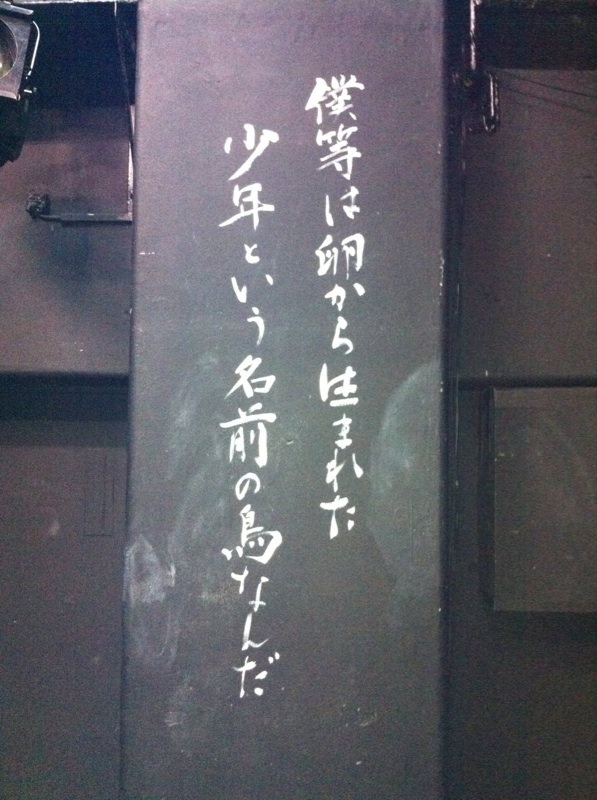 僕等は卵から生まれた
少年という名前の鳥なんだ